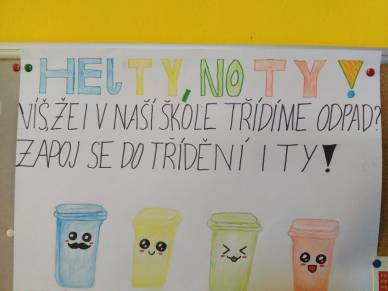 HEJ TY, NO TY!
VÍŠ, ŽE I V NAŠÍ ŠKOLE TŘÍDÍME ODPAD?
ZAPOJ SE DO TŘÍDĚNÍ I TY!